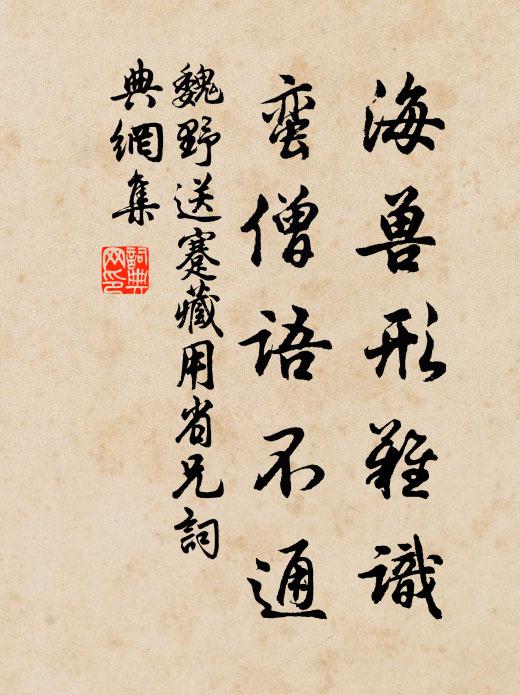 海兽形難識
蛮僧語不通
魏野送蹇藏用省兄詞
典網集
詞典
网印